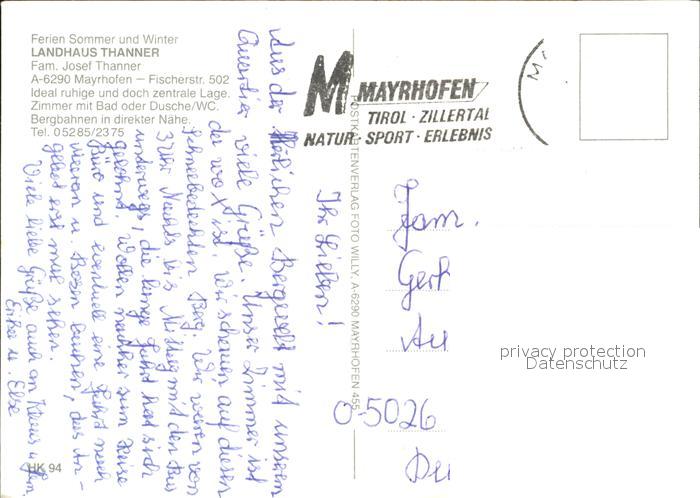 Ferien Sommer und Winter
LANDHAUS THANNER
Fam. Josef Thanner
A-6290 Mayrhofen — Fischerstr. 502
Ideal ruhige und doch zentrale Lage.
Zimmer mit Bad oder Dusche/WC.
Bergbahnen in direkter Nähe.
Tel. 05285/2375
M MAYRHOFEN
TIROL · ZILLERTAL
NATUR · SPORT · ERLEBNIS
M
POSTKARTENVERLAG FOTO WILLY, A-6290 MAYRHOFEN 455
Ihr Lieben!
Aus der herrlichen Bergwelt mit unserem
Quartier viele Grüße. Unser Zimmer ist
da wo X ist. Wir schauen auf diesen
schneebedeckten Berg. Wir waren von
3 Uhr Nachts bis Mittag mit dem Bus
unterwegs, die lange Fahrt hat sich
gelohnt. Wollen nachher zum Reise
büro und eventuell eine Fahrt nach
Meran u. Bozen buchen, das An-
gebot erst mal sehen.
Viele liebe Grüße auch an Klaus u. Fam.
Erika u. Else
Fam.
Ger
Au
O-5026
HK 94
privacy protection
Datenschutz